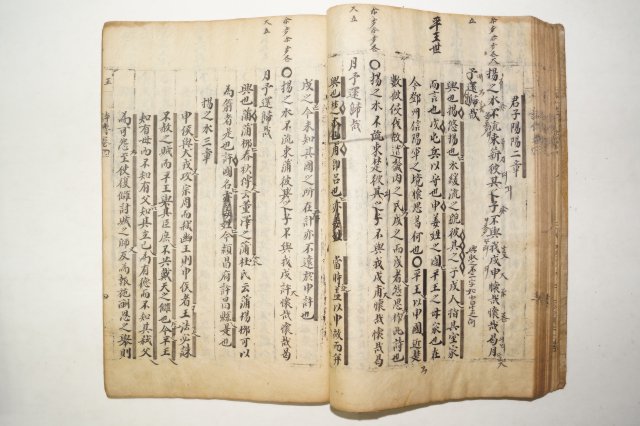 君子陽陽二章
揚之水不流束薪彼其之子不與我戍申懷哉懷哉曷月
予還歸哉
平王世
興也揚悠揚也水緩流之貌彼其之子戍人指其室家
而言也戍屯兵以守也申姜姓之國平王之母家也在
今鄧州信陽軍之境懷思曷何也○平王以申國近楚
數被侵伐故遣畿內之民戍之而戍者怨思作此詩也
○揚之水不流束楚彼其之子不與我戍甫懷哉懷哉曷
月予還歸哉
興也甫卽呂也亦姜姓當時蓋以申故而幷
戍之今未知其國之所在計亦不遠於申許也
○揚之水不流束蒲彼其之子不與我戍許懷哉懷哉曷
月予還歸哉
興也蒲蒲柳春秋傳云董澤之蒲杜氏云蒲楊柳可以
為箭者是也許國名亦姜姓今潁昌府許昌縣是也
揚之水三章
申侯與犬戎攻宗周而弒幽王則申侯者王法必誅
不赦之賊而平王與其臣庶不共戴天之讎也今平王
知有母而不知有父知其立己為有德而不知其弒父
為可怨至使復讎討賊之師反為報施酬恩之擧則